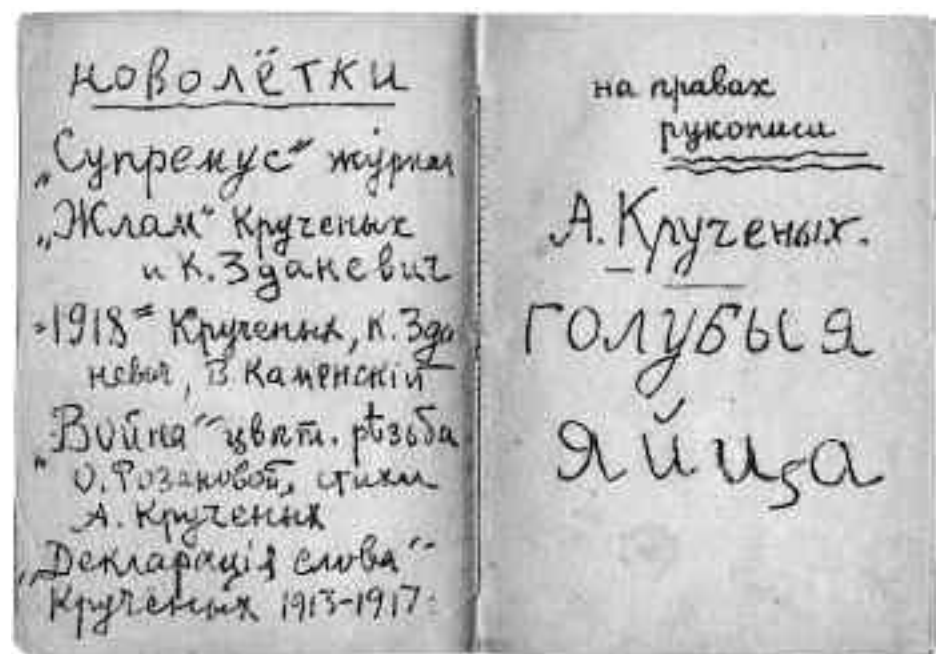 новолётки
„Супремус“ журнал
„Жлам“ Крученых
и К. Зданевич
„1918“ Крученых, К. Зда
невич, В. Каменскiй
„Война“ цвѣт. рѣзьба
О. Розановой, стихи
А. Крученых
„Декларацiя слова“
Крученых 1913-1917:
на правах
рукописи
А. Крученых.
ГОЛУБЫЯ
яйца